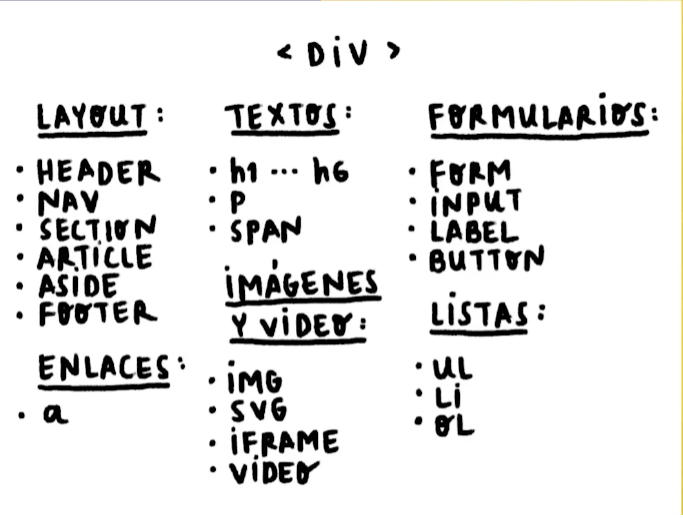 <DiV>
LAYOUT:
• HEADER
• NAV
• SECTION
• ARTICLE
• ASIDE
• FOOTER
ENLACES:
• a
TEXTOS:
• h1 ... h6
• P
• SPAN
iMÁGENES
Y ViDEO:
• iMG
• SVG
• iFRAME
• ViDEO
FORMULARiOS:
• FORM
• iNPUT
• LABEL
• BUTTON
LiSTAS:
• UL
• Li
• OL